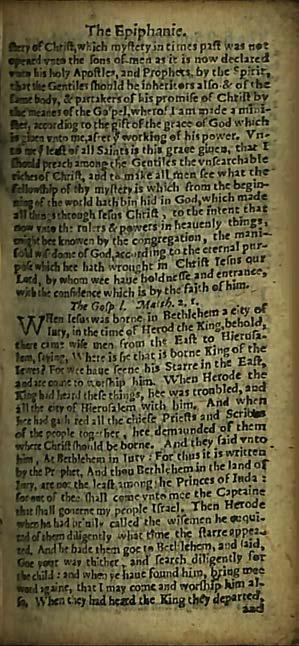 The Epiphanie.
stery of Christ, which mystery in times past was not
opened vnto the sons of men as it is now declared
vnto his holy Apostles, and Prophets, by the Spirit,
that the Gentiles should be inheritors also & of the
same body, & partakers of his promise of Christ by
the meanes of the Gospel, wherof I am made a mini-
ster, according to the gift of the grace of God which
is giuen vnto me, after ẏ working of his power. Vn-
to me ẏ least of all Saints is this grace giuen, that I
should preach among the Gentiles the vnsearchable
riches of Christ, and to make all men see what the
fellowship of thy mystery is which from the begin-
ning of the world hath bin hid in God, which made
all things through Iesus Christ, to the intent that
now vnto the rulers & powers in heauenly things,
might bee knowen by the congregation, the mani-
fold wisdome of God, according to the eternal pur-
pose which hee hath wrought in Christ Iesus our
Lord, by whom wee haue boldnesse and entrance,
with the confidence which is by the faith of him.
The Gospel. Matth. 2. 1.
WHen Iesus was borne in Bethlehem a city of
Iury, in the time of Herod the King, behold,
there came wise men from the East to Hierusa-
lem, saying, Where is he that is borne King of the
Iewes? For wee haue seene his Starre in the East,
and are come to worship him. When Herode the
King had heard these things, hee was troubled, and
all the city of Hierusalem with him. And when
hee had gathered all the chiefe Priests and Scribes
of the people together, hee demaunded of them
where Christ should be borne. And they said vnto
him, At Bethlehem in Iury: For thus it is written
by the Prophet, And thou Bethlehem in the land of
Iury, are not the least among the Princes of Iuda:
for out of thee shall come vnto mee the Captaine
that shall gouerne my people Israel. Then Herode
when he had priuily called the wisemen he enqui-
red of them diligently what time the starre appea-
red, And he bade them goe to Bethlehem, and said,
Goe your way thither, and search diligently for
the child: and when ye haue found him, bring mee
word againe, that I may come and worship him al-
so. When they had heard the King they departed,
and